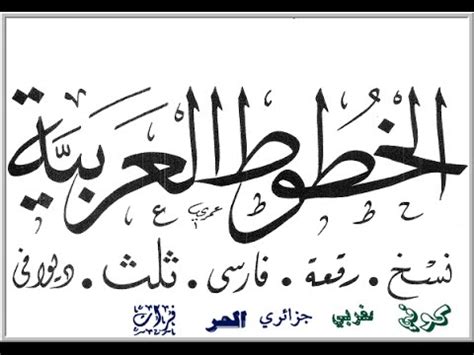 الخُطوط العَرَبيَّة
نسْخ . رقعة . فارسى . ثلث . ديوانى
كوفي مغربي جزائري الحر